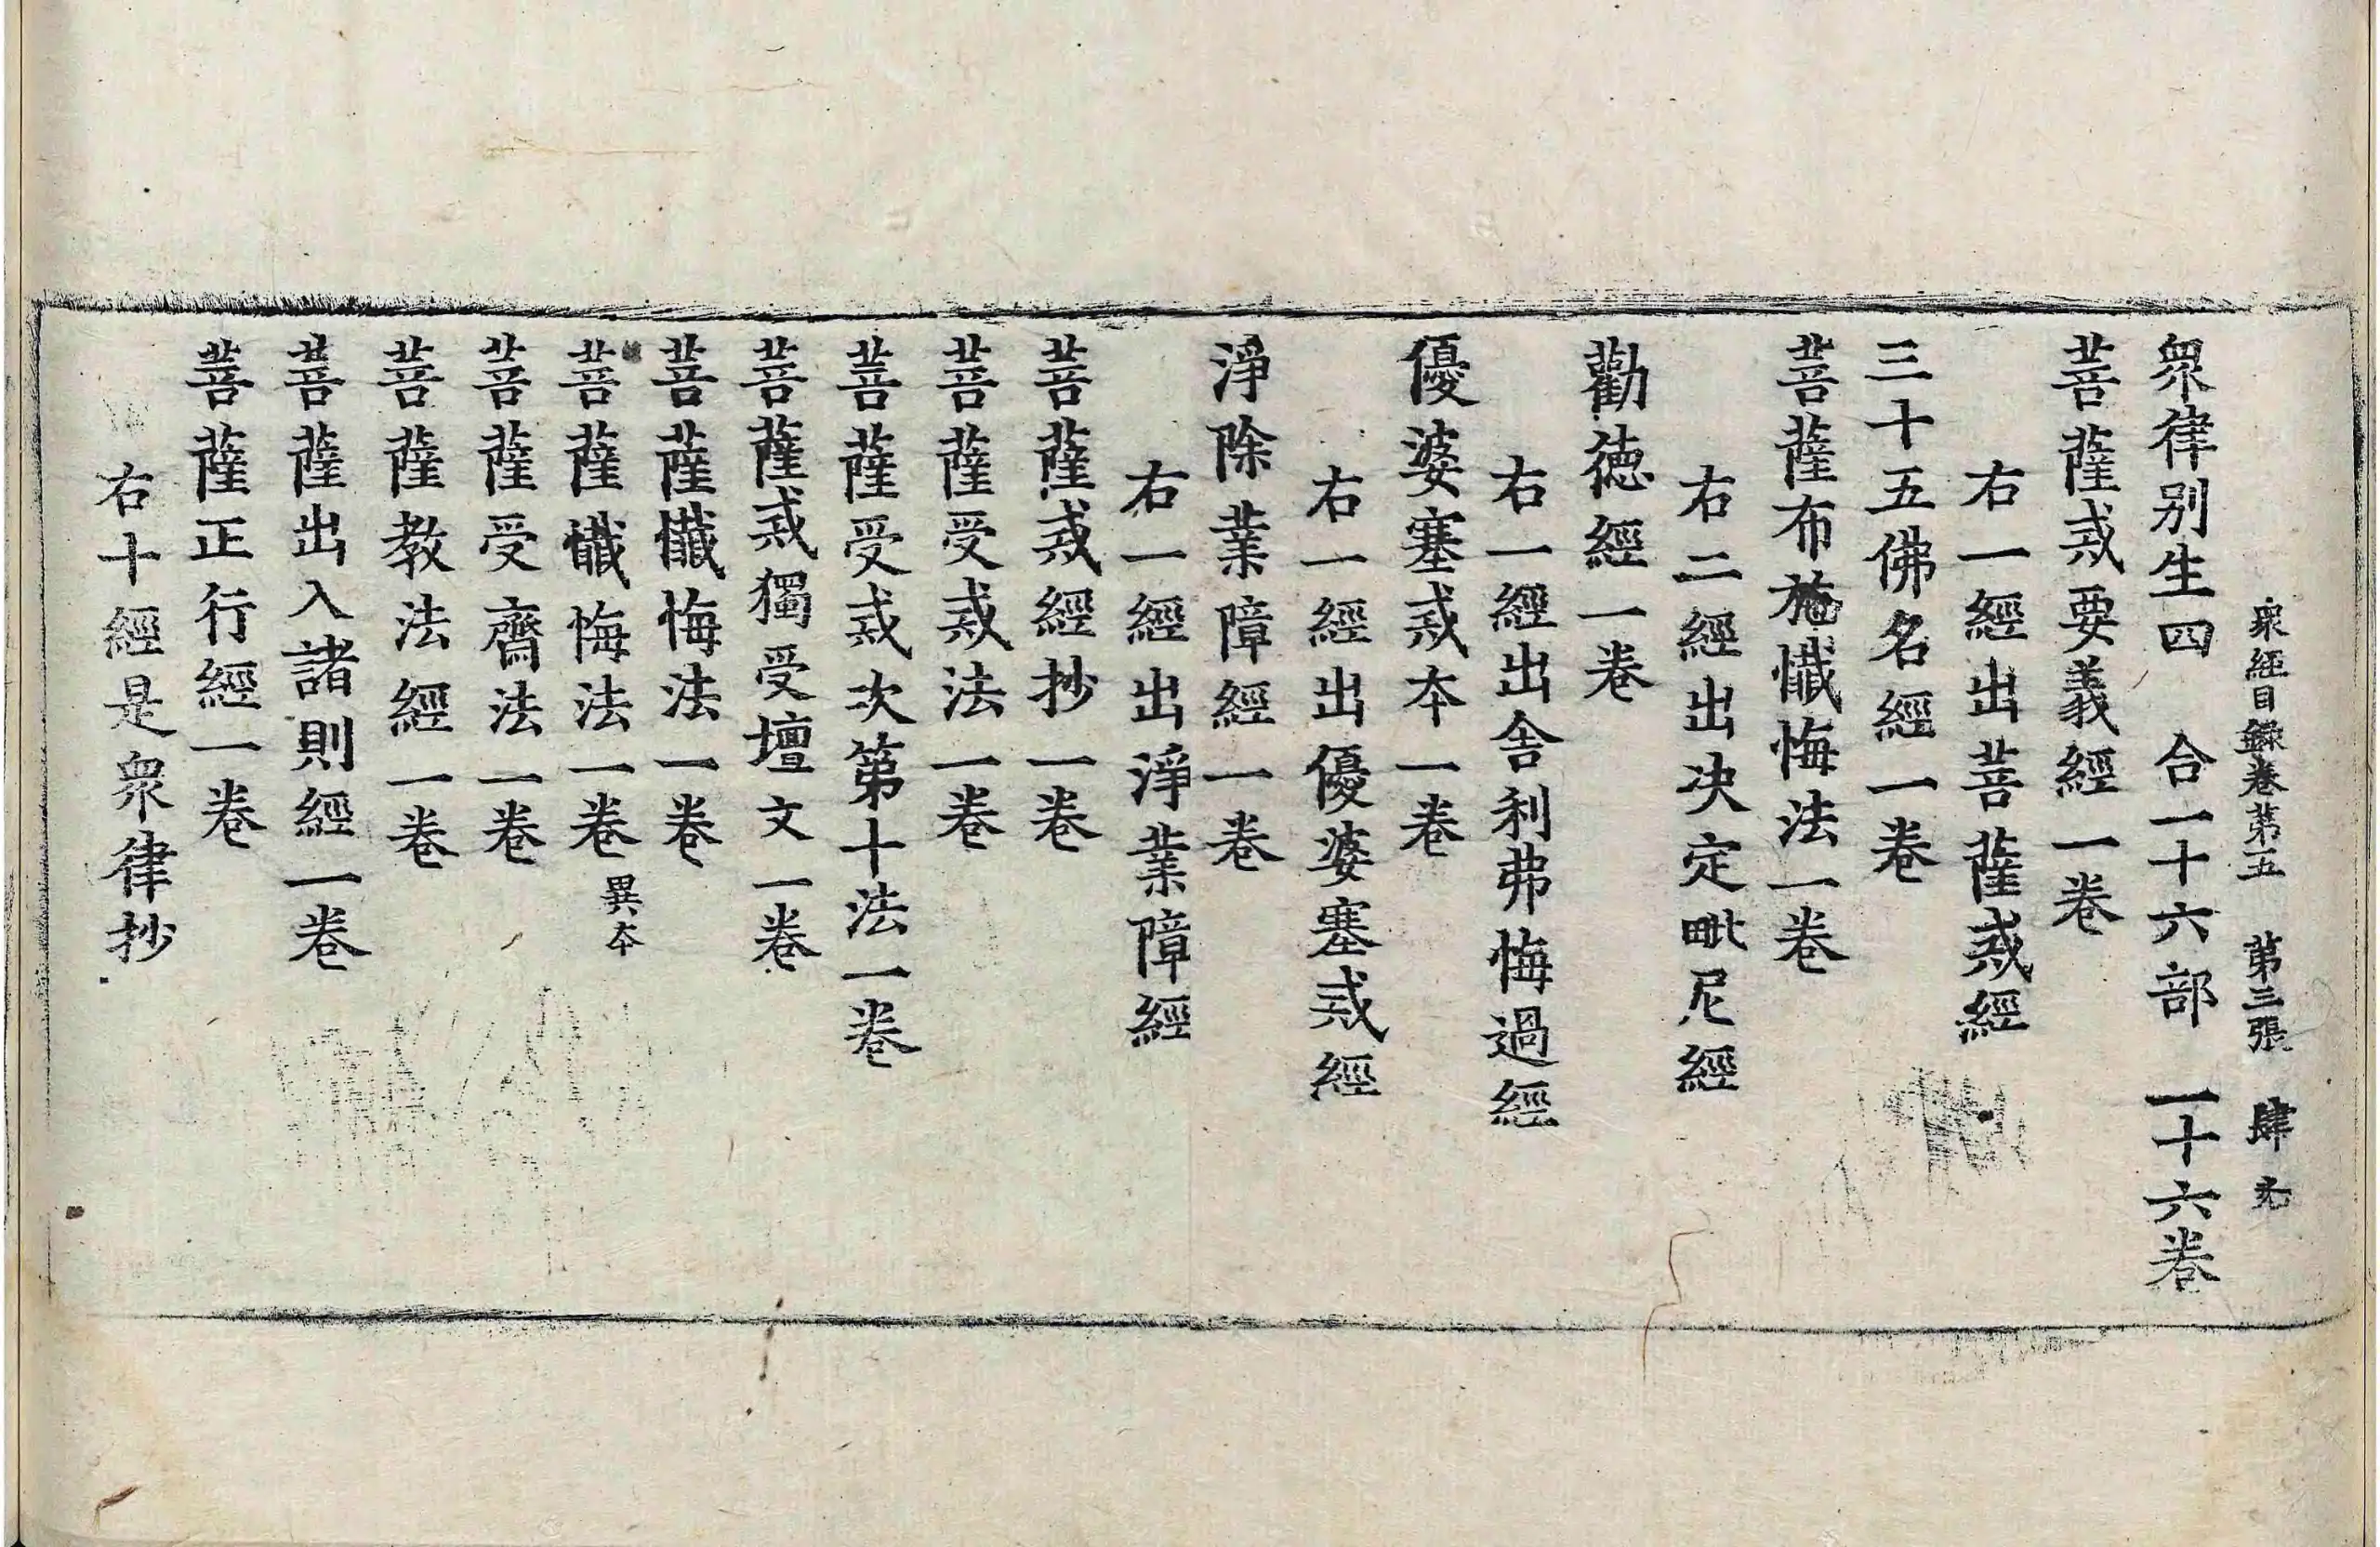 衆經目錄卷第五　第三張　肆
衆律别生四　合一十六部　一十六卷
菩薩戒要義經一卷
右一經出菩薩戒經
三十五佛名經一卷
菩薩布施懺悔法一卷
右二經出决定毗尼經
勸德經一卷
右一經出舍利弗悔過經
優婆塞戒本一卷
右一經出優婆塞戒經
淨除業障經一卷
右一經出淨業障經
菩薩戒經抄一卷
菩薩受戒法一卷
菩薩受戒次第十法一卷
菩薩戒獨受壇文一卷
菩薩懺悔法一卷
菩薩懺悔法一卷 異本
菩薩受齋法一卷
菩薩教法經一卷
菩薩出入諸則經一卷
菩薩正行經一卷
右十經是衆律抄